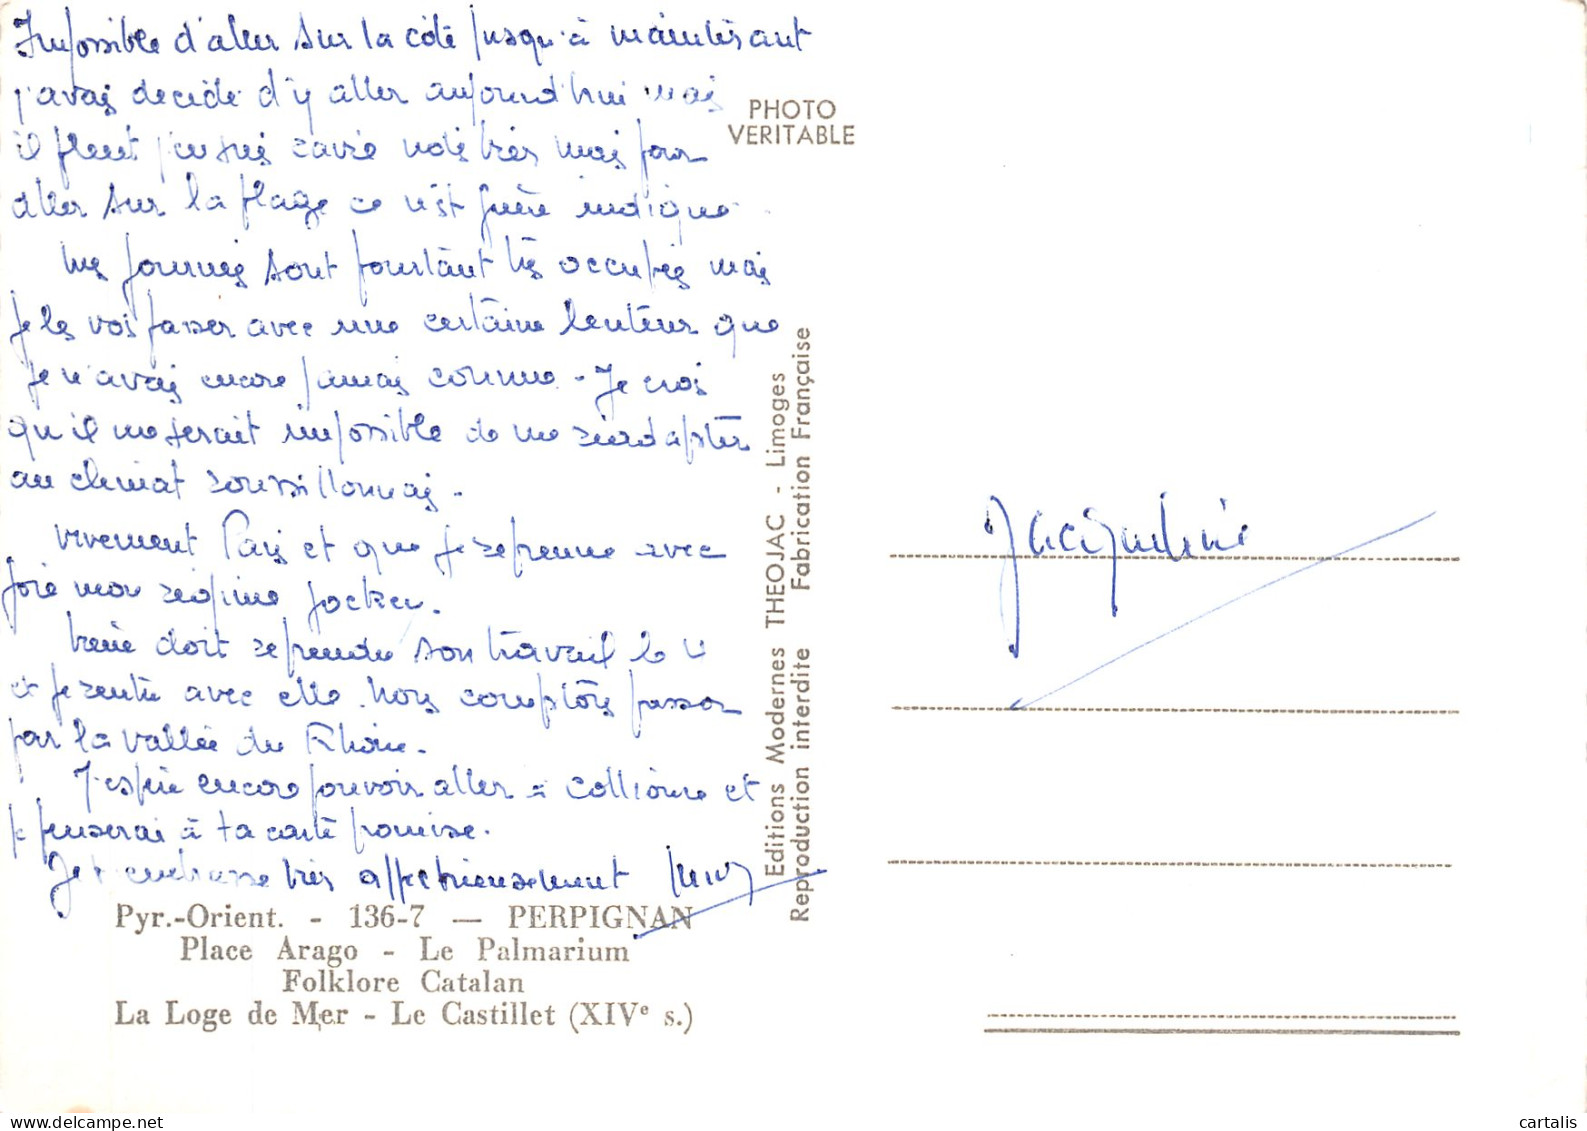 Impossible d'aller sur la côte jusqu'à maintenant
j'avais décidé d'y aller aujourd'hui mais
il pleut j'en suis ravie notes très mais pour
aller sur la plage ce n'est guère indiqué
Mes journées sont pourtant très occupées mais
je les vois passer avec une certaine lenteur que
je n'avais encore jamais connue - Je crois
qu'il me serait impossible de me réadapter
au climat roussillonnais -
Vivement Paris et que je reprenne avec
joie mon régime jockey.
doit reprendre son travail le 4
et je rentre avec elle. Nous comptons passer
par la vallée du Rhône -
J'espère encore pouvoir aller à Collioure et
je penserai à ta carte promise.
Je t'embrasse très affectueusement
Jacqueline
PHOTO
VERITABLE
Editions Modernes THEOJAC - Limoges
Reproduction interdite Fabrication Française
Pyr.-Orient. - 136-7 — PERPIGNAN
Place Arago - Le Palmarium
Folklore Catalan
La Loge de Mer - Le Castillet (XIVe s.)
cartalis